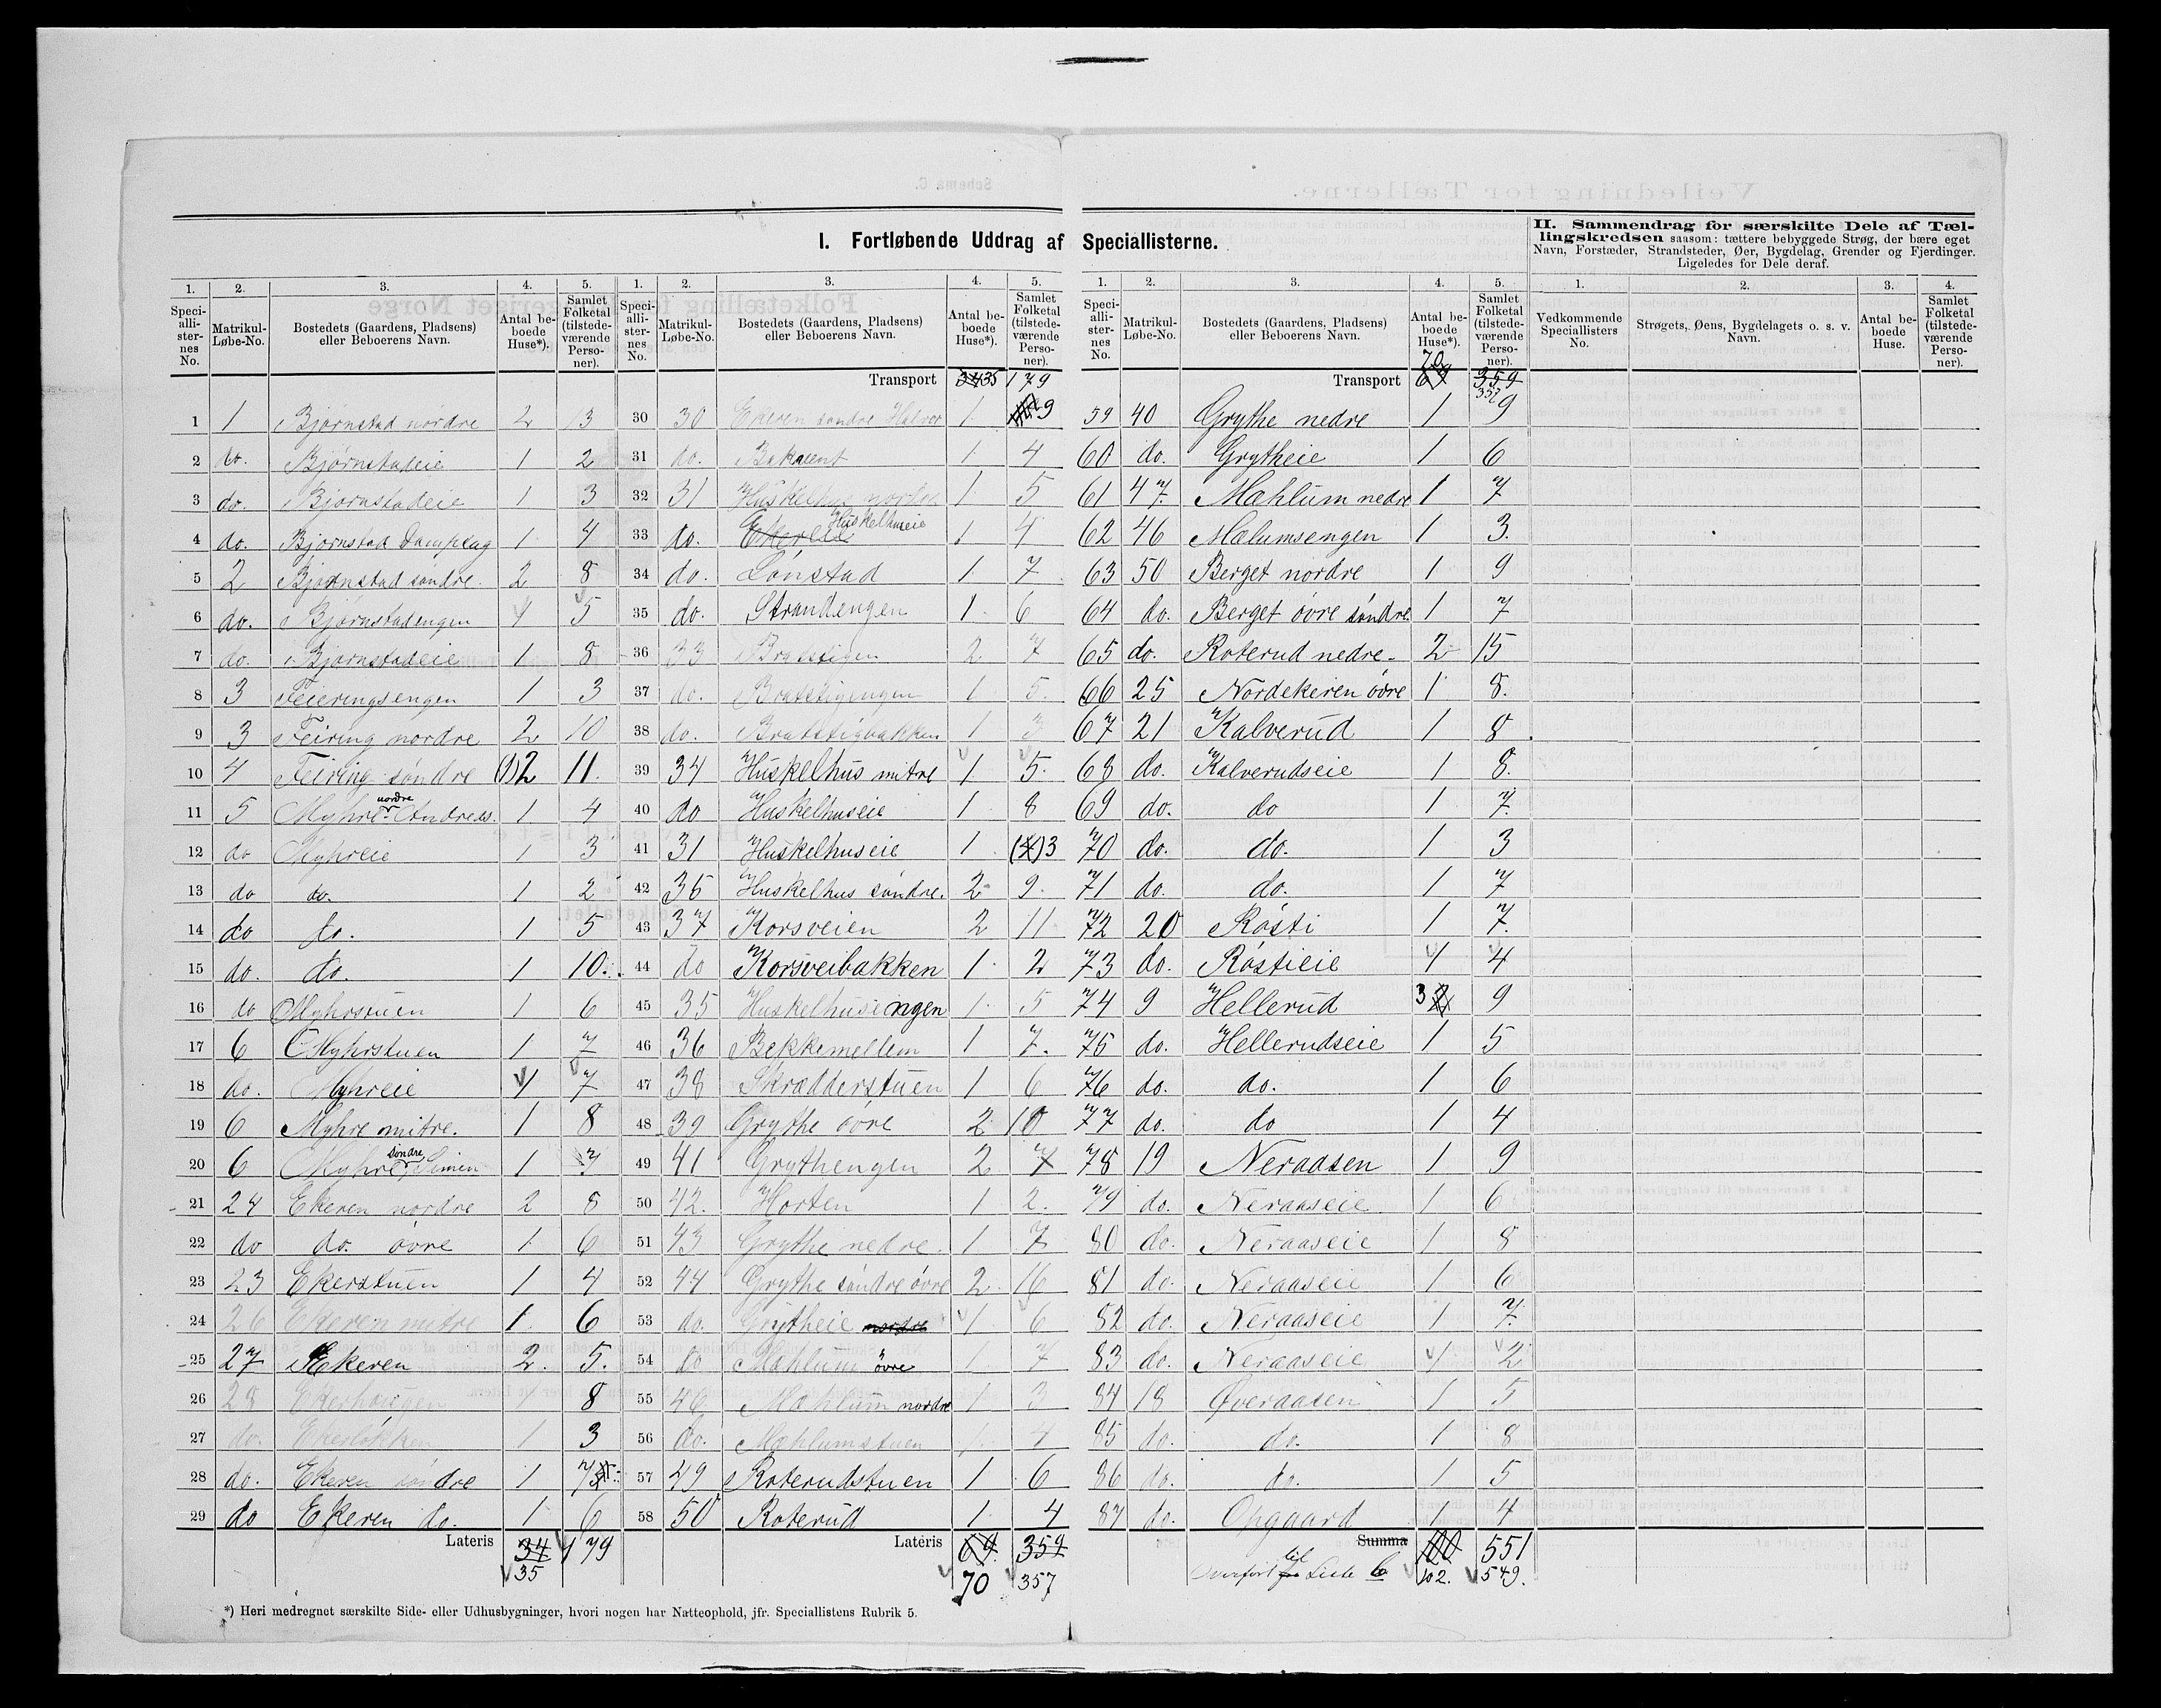 I. Fortløbende Uddrag af Speciallisterne.
II. Sammendrag for særskilte Dele af Tællingskredsen saasom: tættere bebyggede Strøg, der bære eget
Navn, Forstæder, Strandsteder, Øer, Bygdelag, Grender og Fjerdinger.
Ligeledes for Dele deraf.
1. 2. 3. 4. 5.
Speciallisternes No. Matrikul-Løbe-No. Bostedets (Gaardens, Pladsens) eller Beboerens Navn. Antal beboede Huse*). Samlet Folketal (tilstedeværende Personer).
1 1 Bjørnstad nordre 2 13
2 do. Bjørnstadeie 1 2
3 do. Bjørnstadeie 1 3
4 do. Bjørnstad Dampsag 1 4
5 2 Bjørnstad søndre 2 8
6 do. Bjørnstadengen 1 5
7 do. Bjørnstadeie 1 8
8 3 Feieringsengen 1 3
9 3 Feiring nordre 2 10
10 4 Feiring søndre (1) 2 11
11 5 Myhre nordre Andreas. 1 4
12 do Myhreie 1 3
13 do do. 1 2
14 do do. 1 5
15 do. do. 1 10
16 do Myhrstuen 1 6
17 6 Myhrstuen 1 7
18 do. Myhreie 1 7
19 6 Myhre mitre. 1 8
20 6 Myhre søndre Simen 1 7
21 24 Ekeren nordre 2 8
22 do do. øvre 1 6
23 23 Ekerstuen 1 4
24 26 Ekeren mitre 1 6
25 27 Ekeren 2 5
26 28 Ekerhaugen 1 8
27 do. Ekerløkken 1 3
28 do. Ekeren søndre 1 7
29 do Ekeren do. 1 6
Lateris 34 179
35
1. 2. 3. 4. 5.
Speciallisternes No. Matrikul-Løbe-No. Bostedets (Gaardens, Pladsens) eller Beboerens Navn. Antal beboede Huse*). Samlet Folketal (tilstedeværende Personer).
Transport 34 35 179
30 30 Ekeren søndre Halvor 1 9
31 do. 1 4
32 31 Huskelhus nordre 1 5
33 do. Huskelhuseie 1 4
34 do. Lønstad 1 7
35 do. Strandengen 1 6
36 33 Bratstigen 2 7
37 do. Bratstigengen 1 5
38 do. Bratstigbakken 1 3
39 34 Huskelhus mitre 1 5
40 do Huskelhuseie 1 8
41 31 Huskelhuseie 1 (4) 3
42 35 Huskelhus søndre. 2 9
43 37 Korsveien 2 11
44 do Korsveibakken 1 2
45 35 Huskelhusengen 1 5
46 36 Bekkemellem 1 7
47 38 Skrædderstuen 1 6
48 39 Grythe øvre 2 10
49 41 Grythengen 2 7
50 42. Horten 1 2
51 43 Grythe nedre 1 7
52 44 Grythe søndre øvre 2 16
53 do. Grytheie nordre 1 6
54 do Mæhlum øvre 1 7
55 46 Mæhlum nordre 1 3
56 do. Mæhlumstuen 1 4
57 49 Roterudstuen 1 6
58 50 Roterud 1 4
Lateris 69 359
70 357
1. 2. 3. 4. 5.
Speciallisternes No. Matrikul-Løbe-No. Bostedets (Gaardens, Pladsens) eller Beboerens Navn. Antal beboede Huse*). Samlet Folketal (tilstedeværende Personer).
70
Transport 69 359
357
59 40 Grythe nedre 1 9
60 do. Grytheie 1 6
61 47 Mæhlum nedre 1 7
62 46 Mælumsengen 1 3
63 50 Berget nordre 1 9
64 do. Berget øvre søndre 1 7
65 do. Roterud nedre 2 15
66 25 Nordekeren øvre 1 8
67 21 Kalverud 1 8
68 do. Kalverudseie 1 8
69 do. do 1 7
70 do. do. 1 3
71 do. do. 1 7
72 20 Røsti 1 7
73 do. Røstieie 1 4
74 9 Hellerud 3 2 9
75 do. Hellerudseie 1 5
76 do. do. 1 6
77 do. do 1 4
78 19 Neraasen 1 9
79 do. Neraaseie 1 6
80 do. Neraaseie 1 8
81 do. Neraaseie 1 6
82 do. Neraaseie 1 7
83 do. Neraaseie 1 2
84 18 Øveraasen 1 5
85 do. do. 1 8
86 do. do. 1 5
87 do. Opgaard 1 4
Summa 100 551
Overført til Liste b 102. 549.
1. 2. 3. 4.
Vedkommende Speciallisters No. Strøgets, Øens, Bygdelagets o. s. v. Navn. Antal beboede Huse. Samlet Folketal (tilstedeværende Personer).
*) Heri medregnet særskilte Side- eller Udhusbygninger, hvori nogen har Natteophold, jfr. Speciallistens Rubrik 5.